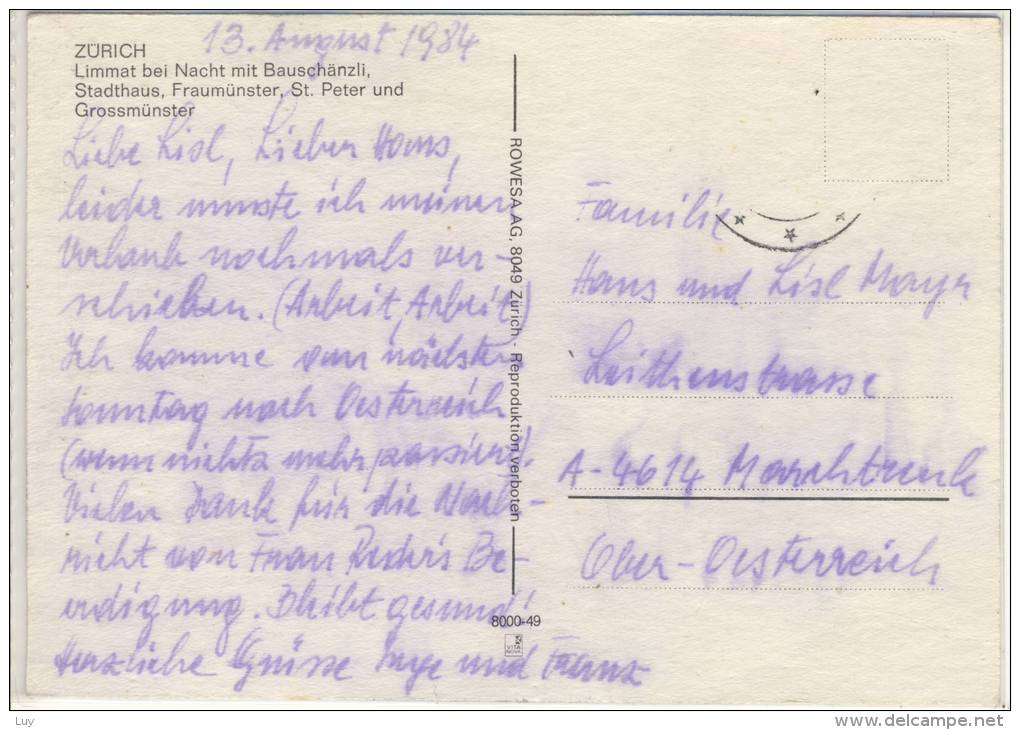 13. August 1984
ZÜRICH
Limmat bei Nacht mit Bauschänzli,
Stadthaus, Fraumünster, St. Peter und
Grossmünster
Liebe Lisl, Lieber Hans,
leider musste ich meinen
Urlaub nochmals ver-
schieben. (Arbeit, Arbeit)
Ich komme am nächsten
Sonntag nach Oesterreich
(wenn nichts mehr passiert).
Vielen Dank für die Nach-
richt von Frau Be-
erdigung. Bleibt gesund!
Herzliche Grüsse Inge und Franz
ROWESA AG, 8049 Zürich - Reproduktion verboten
8000-49
Familie
Hans und Lisl Mayr
Leithenstrasse
A-4614 Marchtrenk
Ober-Oesterreich
Luy
www.delcampe.net